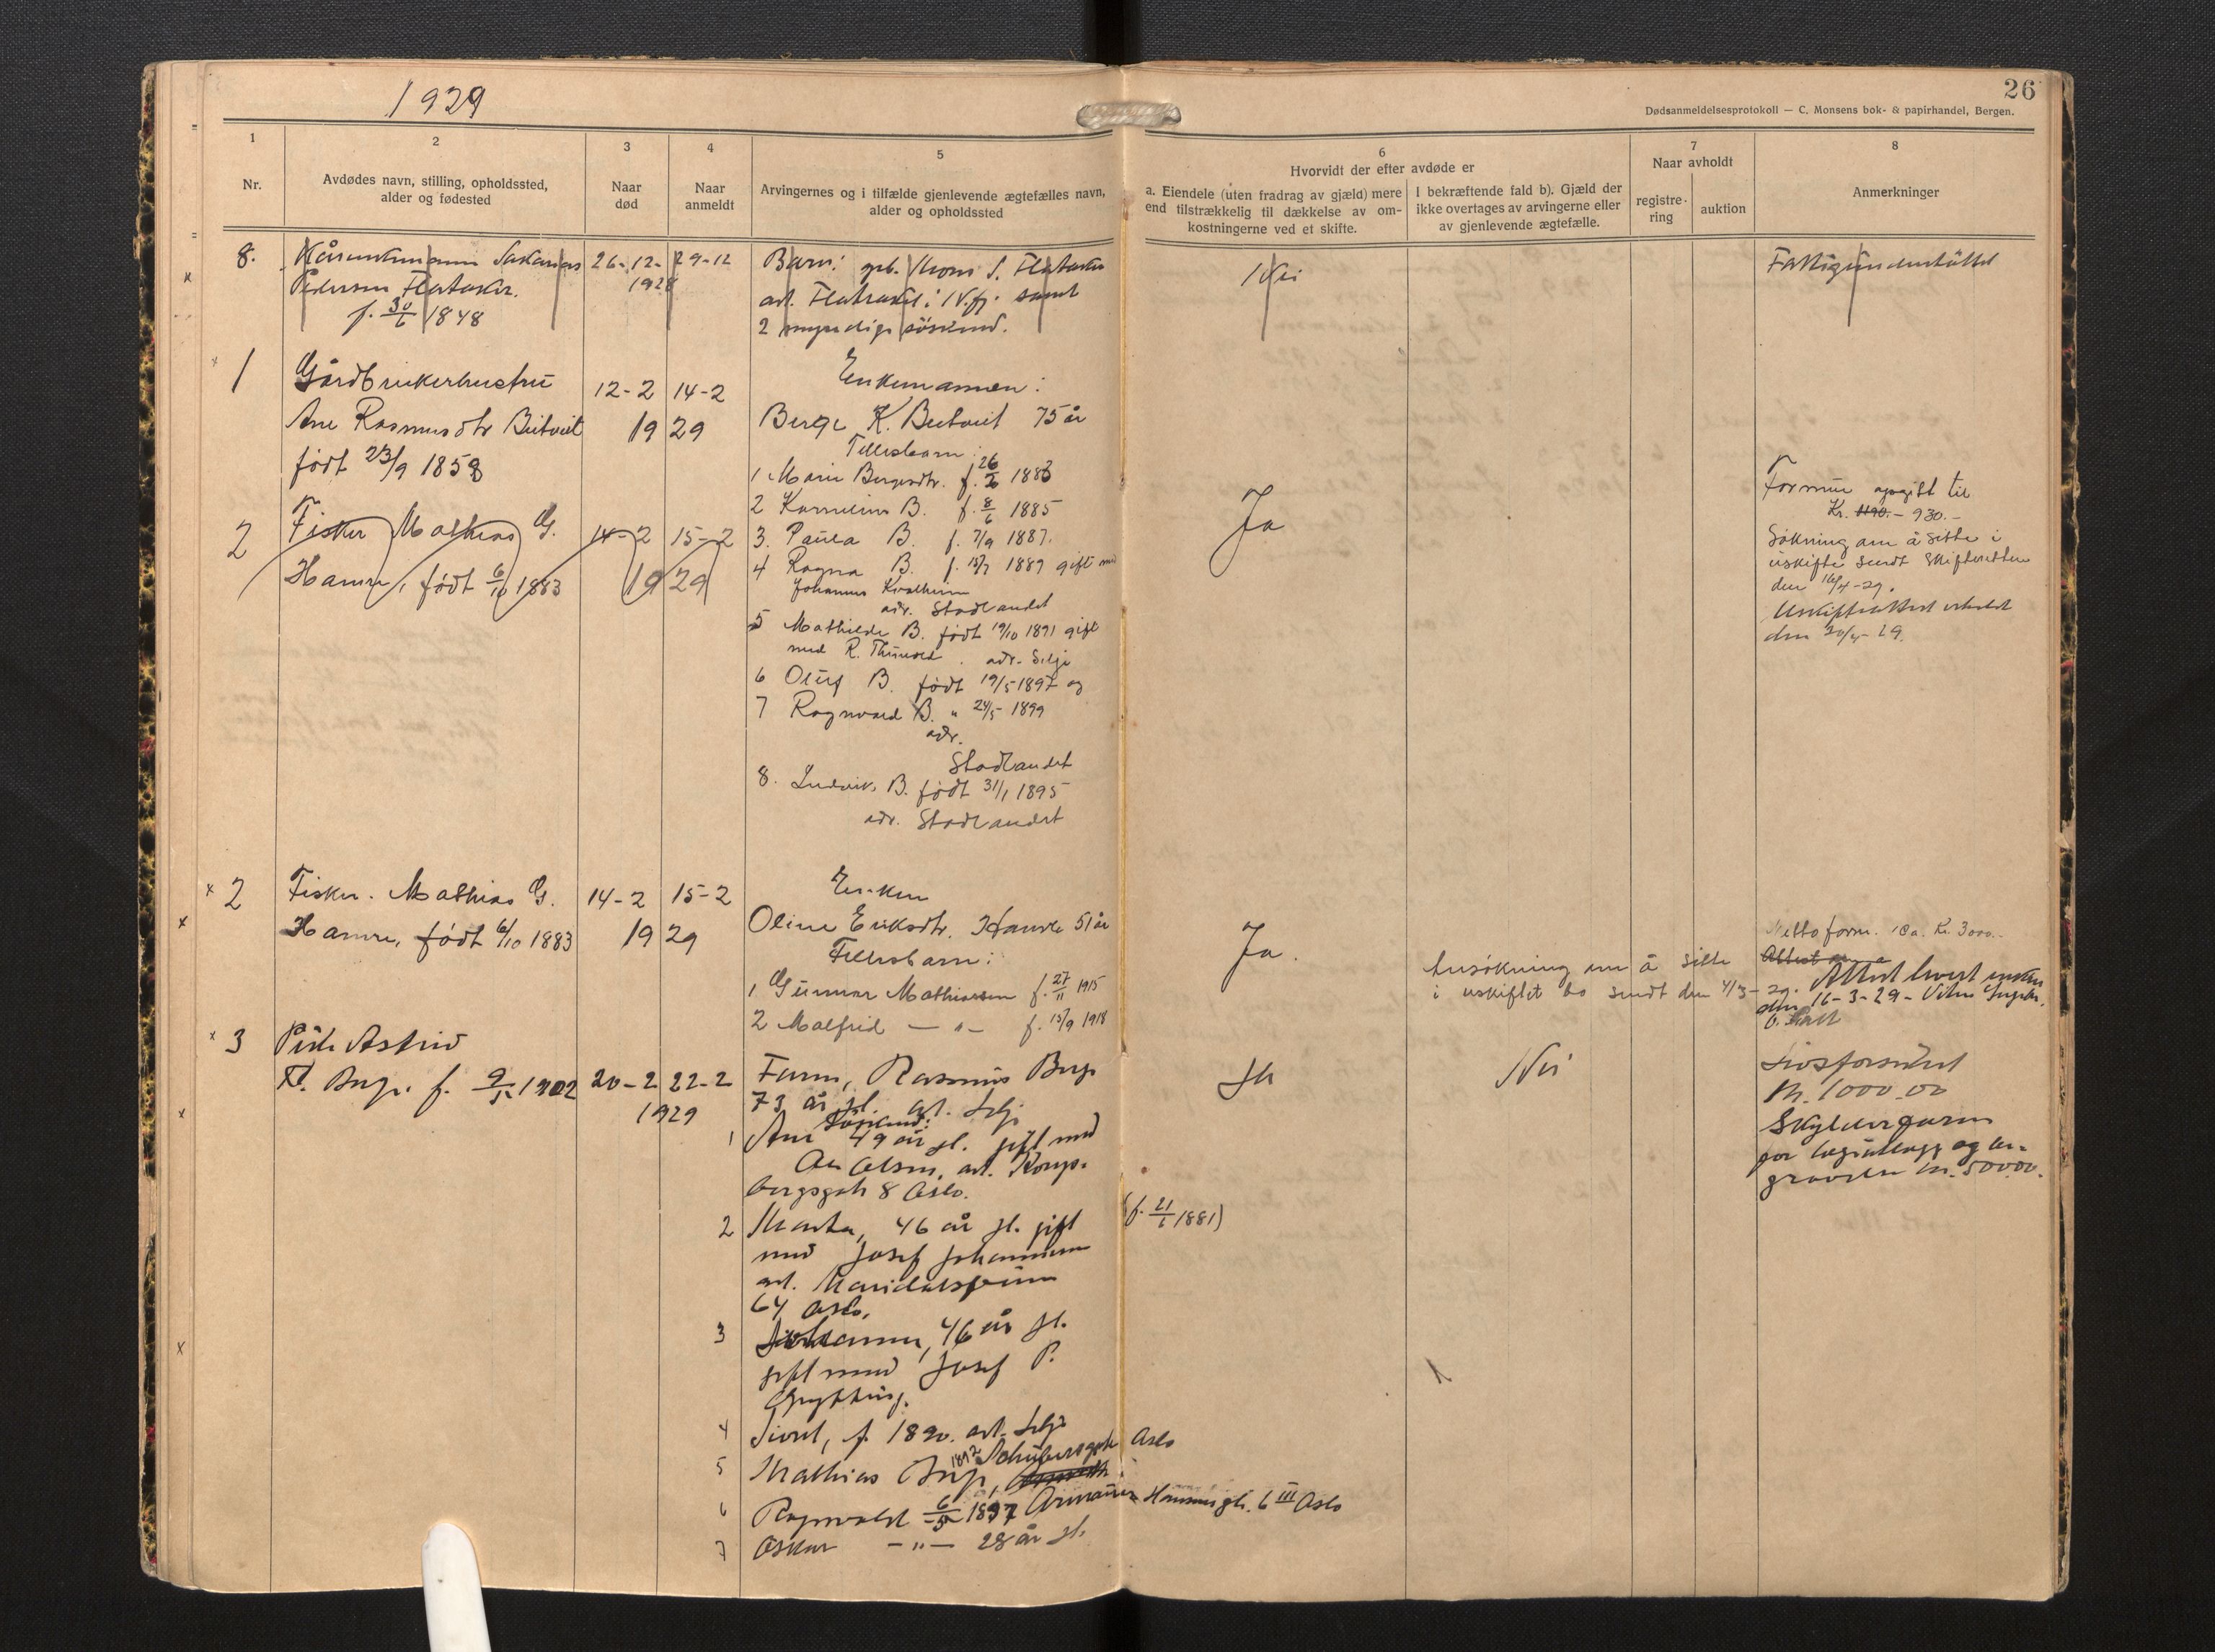 1929
26
Dødsanmeldelsesprotokoll — C. Monsens bok- & papirhandel, Bergen.
1
Nr.
2
Avdødes navn, stilling, opholdssted,
alder og fødested
3
Naar
død
4
Naar
anmeldt
5
Arvingernes og i tilfælde gjenlevende ægtefælles navn,
alder og opholdssted
6
Hvorvidt der efter avdøde er
a. Eiendele (uten fradrag av gjæld) mere
end tilstrækkelig til dækkelse av om-
kostningerne ved et skifte.
I bekræftende fald b). Gjæld der
ikke overtages av arvingerne eller
av gjenlevende ægtefælle.
7
Naar avholdt
registre-
ring
auktion
8
Anmerkninger
8.
Pedersen Flataker.
f. 30/6 1848
26-12-
1928
29-12
Barn:
2 myndige søskend.
Nei
Fattigunderstøttet
1
Gårdbrukerhustru
Ane Rasmusdtr
født 23/9 1858
12-2
14-2
19 29
Enkemannen:
Berge K. 75 år
Fellesbarn:
1 Marie Bergesdtr. f. 26 1883
2 Kornelius B. f. 8/6 1885
3. Paula B. f. 7/9 1887.
4 Ragna B. f. 1889 gift med
Johannes Kvalheim
adr. Stadlandet
5 Mathilde B. født 19/10 1891 gift
med R. adr. Selje
6 Oluf B. født 19/5 1897 og
7 Ragnvald B. " 24/5 1899
adr.
Stadlandet
8. Ludvik B. født 31/1 1895
adr. Stadlandet
Ja
Formue opgitt til
Kr. 1190.- 930.-
Søkning om å sitte i
uskifte sendt Skifteretten
den 16/4-29.
Uskifteattest utstedt
den 20/4-29.
2
Fisker Mathias G.
Hamre, født 6/10 1883
14-2
15-2
19 29
2
Fisker. Mathias G.
Hamre, født 6/10 1883
14-2
15-2
19 29
Enken
Oline Eriksdtr. Hamre 51 år
Fellesbarn:
1 Gunnar Mathiassen f. 27/11 1915
2 Malfrid — " — f. 15/9 1918
Ja.
Ansøkning om å sitte
i uskiftet bo sendt den 4/3-29.
Netto form. ca. Kr. 3000.-
Attest
16-3-29
3
Pike Astrid
R. Berge. f. 9/5 1902
20-2
22-2
1929
Faren, Rasmus Berge
73 år gl. adr. Selje
Søskend:
1 Ane 49 år gl. gift med
Olsen, adr. Kongs-
bergsgate 8 Oslo.
2 Marta, 46 år gl. gift
(f. 21/6 1881)
med Josef Johannessen
adr. Maridalsveien
64 Oslo.
3 Johanna, 46 år gl.
gift med Josef P.
Grytting.
4 Sivert, f. 1890. adr. Selje
5 Mathias Berge, 1892 Oslo
6 Ragnvald 6/5 1897 Armauer Hansens gt. 6 III Oslo
7 Oskar — " — 28 år gl.
Ja
Nei
Livsforsikret
Kr. 1000.00
Skylder faren
for